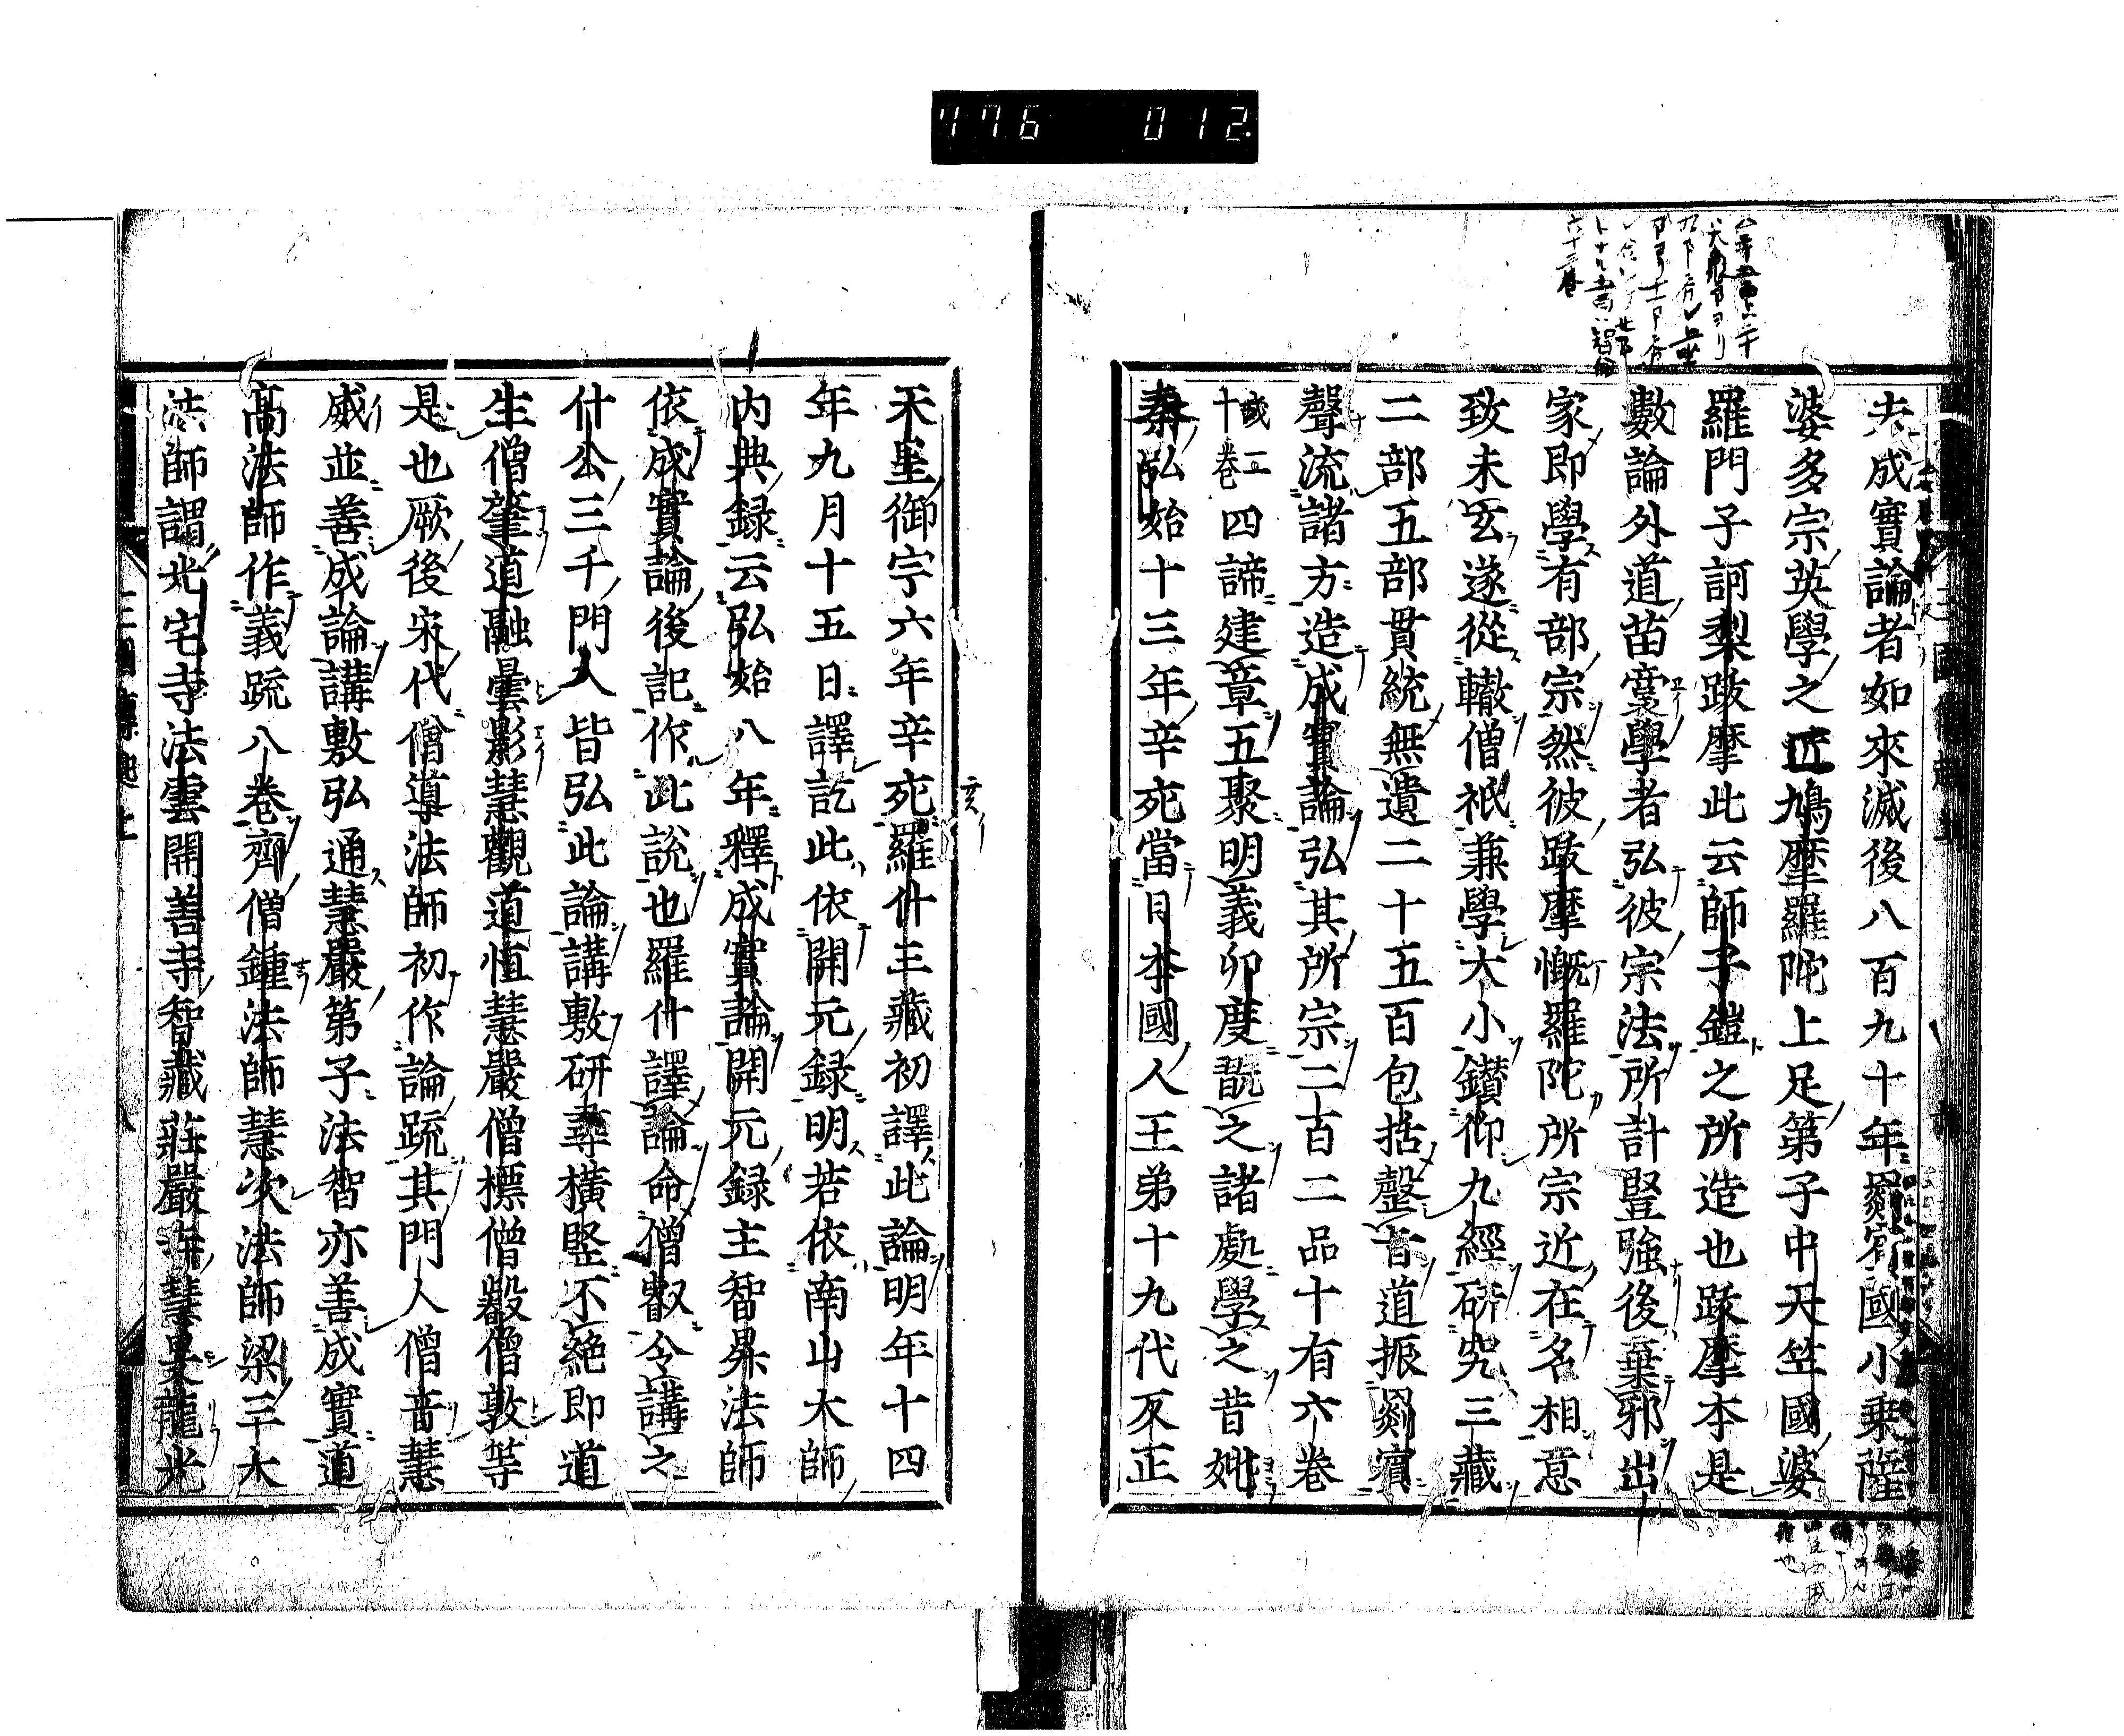 776 012
夫成實論者如來滅後八百九十年罽賓國小乗薩
婆多宗英學之匠鳩摩羅陀上足第子中天竺國婆
羅門子訶梨跋摩此云師子鎧之所造也跋摩本是
數論外道苗裔學者弘彼宗法所計竪強後棄邪出
家即學有部宗然彼跋摩慨羅陀所宗近在名相意
致未玄遂從轍僧祇兼學大小鑚仰九經研究三藏
二部五部貫統無遺二十五百包括罄旨道振罽賓
聲流諸方造成實論弘其所宗二百二品十有六卷
或二十卷四諦建章五聚明義卯度翫之諸處學之昔姚
秦弘始十三年辛亥當日本國人王弟十九代反正
天皇御宇六年辛亥羅什三藏初譯此論明年十四
年九月十五日譯訖此依開元録明若依南山大師
内典録云弘始八年釋成實論開元録主智昇法師
依成實論後記作此説也羅什譯論命僧叡令講之
什公三千門人皆弘此論講敷研尋横竪不絶即道
生僧肇道融曇影慧觀道恒慧嚴僧標僧叡僧敦等
是也厥後宋代僧導法師初作論疏其門人僧音慧
威並善成論講敷弘通慧嚴第子法智亦善成實道
髙法師作義疏八卷齊僧鍾法師慧次法師梁三大
法師謂光宅寺法雲開善寺智藏莊嚴寺慧旻龍光